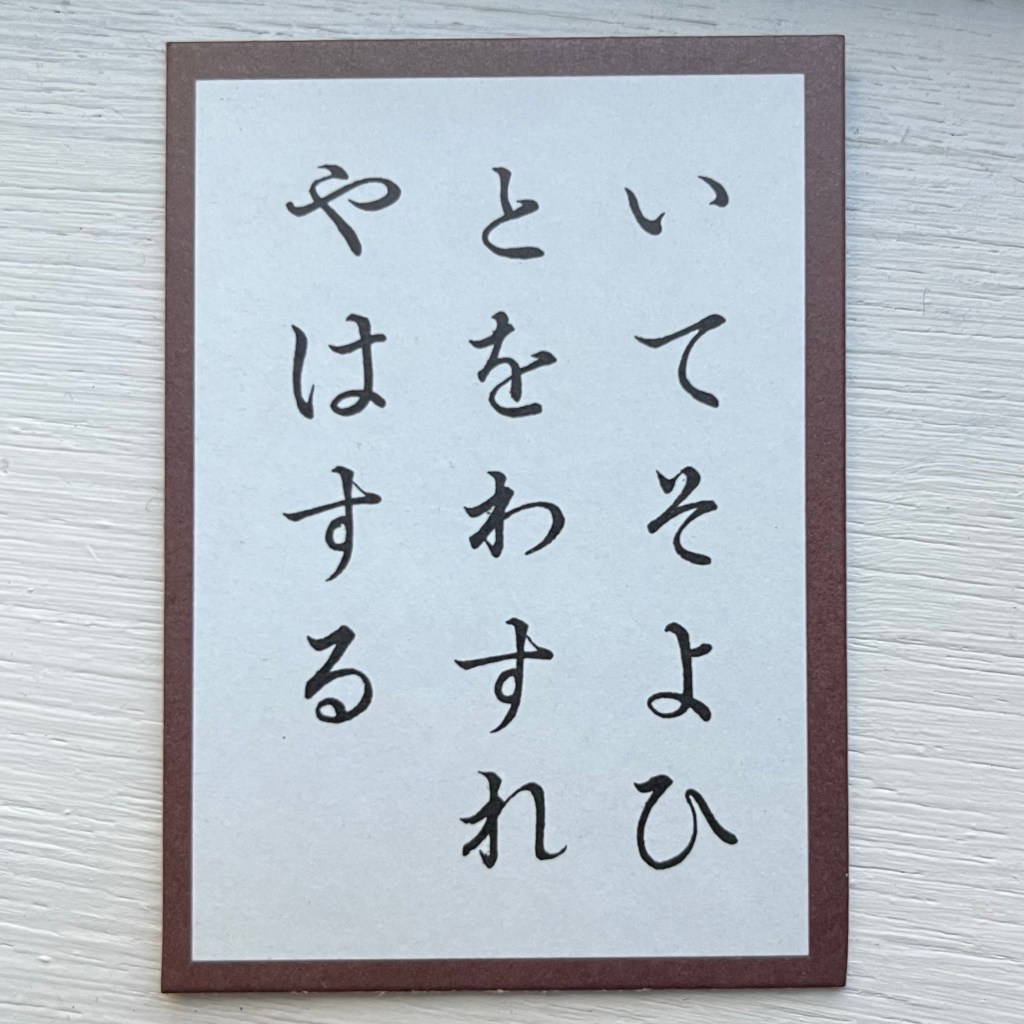 いてそよひ
とをわすれ
やはする